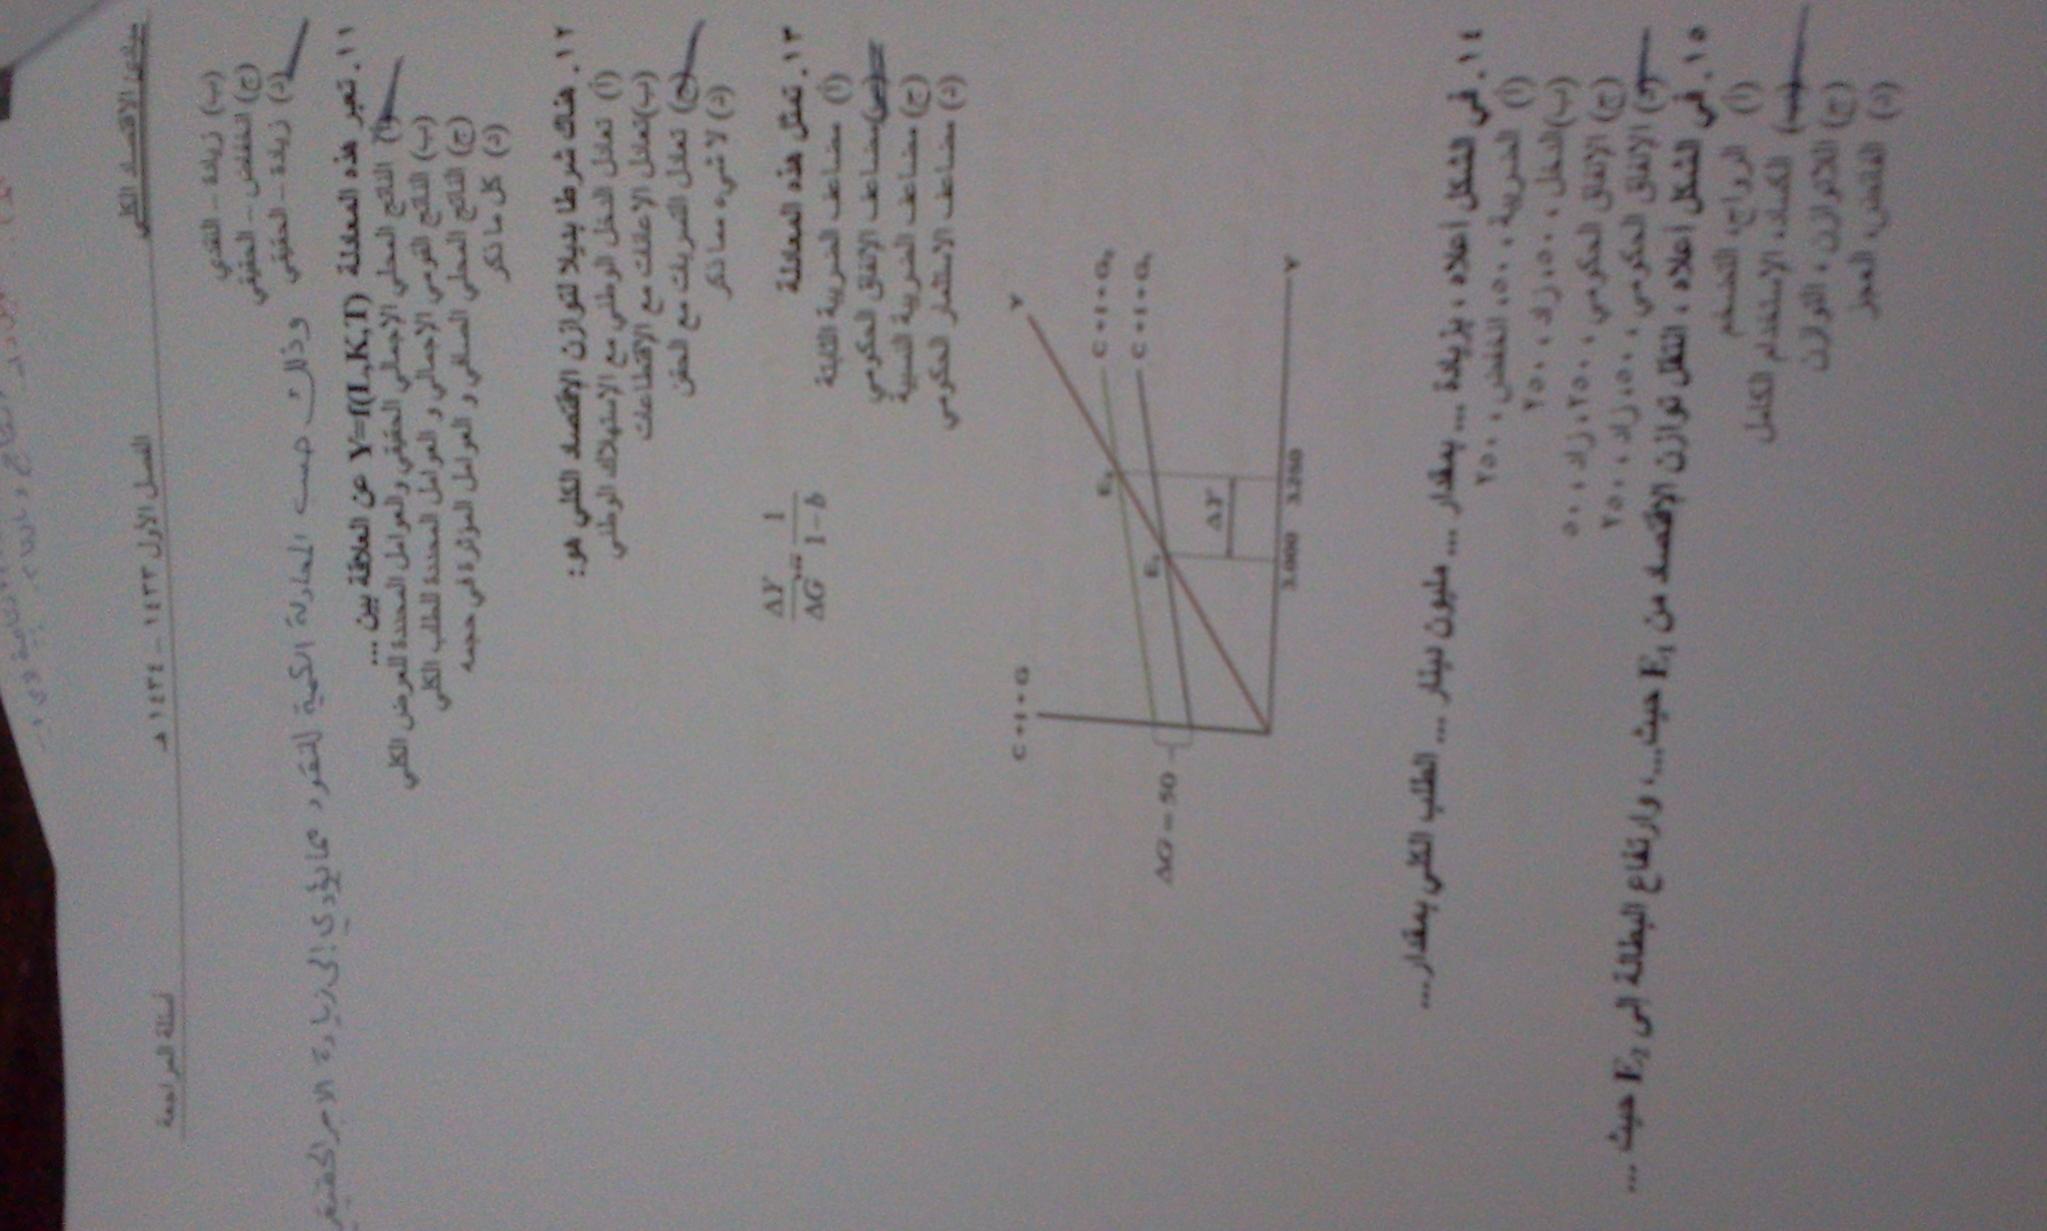 مبادئ الاقتصاد الكلي الفصل الأول ١٤٣٣ – ١٤٣٤ هـ أسئلة المراجعة
(ب) زيادة – النقدي
(ج) انخفاض – الحقيقي
(د) زيادة – الحقيقي
وذلك حسب المعادلة الكمية للنقود مما يؤدي إلى زيادة الأجر الحقيقي
١١. تعبر هذه المعادلة Y=f(L,K,T) عن العلاقة بين ...
(أ) الناتج المحلي الإجمالي الحقيقي والعوامل المحددة للعرض الكلي
(ب) الناتج القومي الإجمالي و العوامل المحددة للطلب الكلي
(ج) الناتج المحلي الصافي و العوامل المؤثرة في حجمه
(د) كل ما ذكر
١٢. هناك شرطا بديلا لتوازن الاقتصاد الكلي هو:
(أ) تعادل الدخل الوطني مع الاستهلاك الوطني
(ب) تعادل الإعانات مع الاقتطاعات
(ج) تعادل التسربات مع الحقن
(د) لا شيء مما ذكر
١٣. تمثل هذه المعادلة
ΔY/ΔG = 1/1−b
(أ) مضاعف الضريبة الثابتة
(ب) مضاعف الإنفاق الحكومي
(ج) مضاعف الضريبة النسبية
(د) مضاعف الاستثمار الحكومي
C + I + G
Y
C + I + G₂
C + I + G₁
E₂
E₁
ΔG = 50
ΔY
3.000 3.250 Y
١٤. في الشكل أعلاه ، بزيادة ... بمقدار ... مليون دينار ... الطلب الكلي بمقدار...
(أ) الضريبة ، ٥٠، انخفض ، ٢٥٠
(ب) الدخل ، ٥٠، زاد ، ٢٥٠
(ج) الإنفاق الحكومي ، ٢٥٠، زاد ، ٥٠
(د) الإنفاق الحكومي ، ٥٠، زاد ، ٢٥٠
١٥. في الشكل أعلاه ، انتقل توازن الاقتصاد من E₁ حيث...، وارتفاع البطالة إلى E₂ حيث ...
(أ) الرواج، التضخم
(ب) الكساد، الاستخدام الكامل
(ج) اللاتوازن ، التوازن
(د) الفائض، العجز